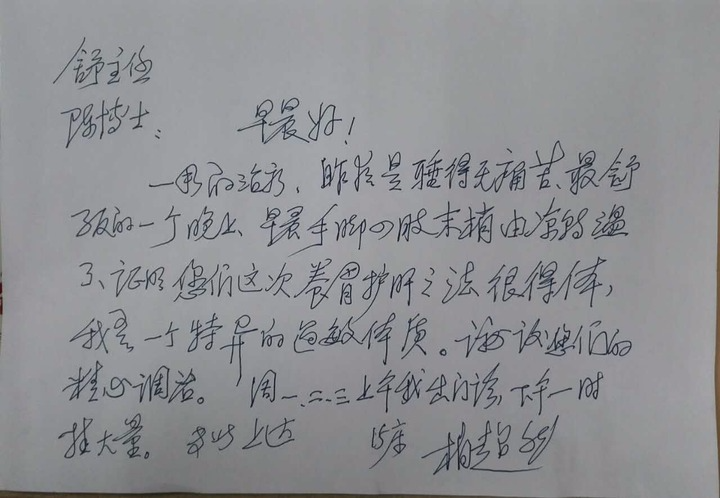 舒主任
陈博士: 早晨好!
一周的治疗、昨夜是睡得无痛苦、最舒
服的一个晚上、早晨手脚四肢末梢由凉转温
了、证明您们这次养胃护肝之法很得体,
我是一个特异的过敏体质。谢谢您们的
精心调治。 周一、二、三上午我出门诊,下午一时
挂大量。 专此上达 15床